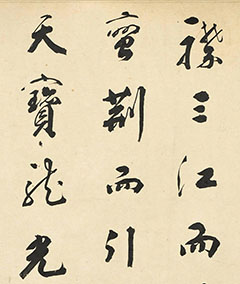 襟三江而
蛮荆而引
天寶龍光